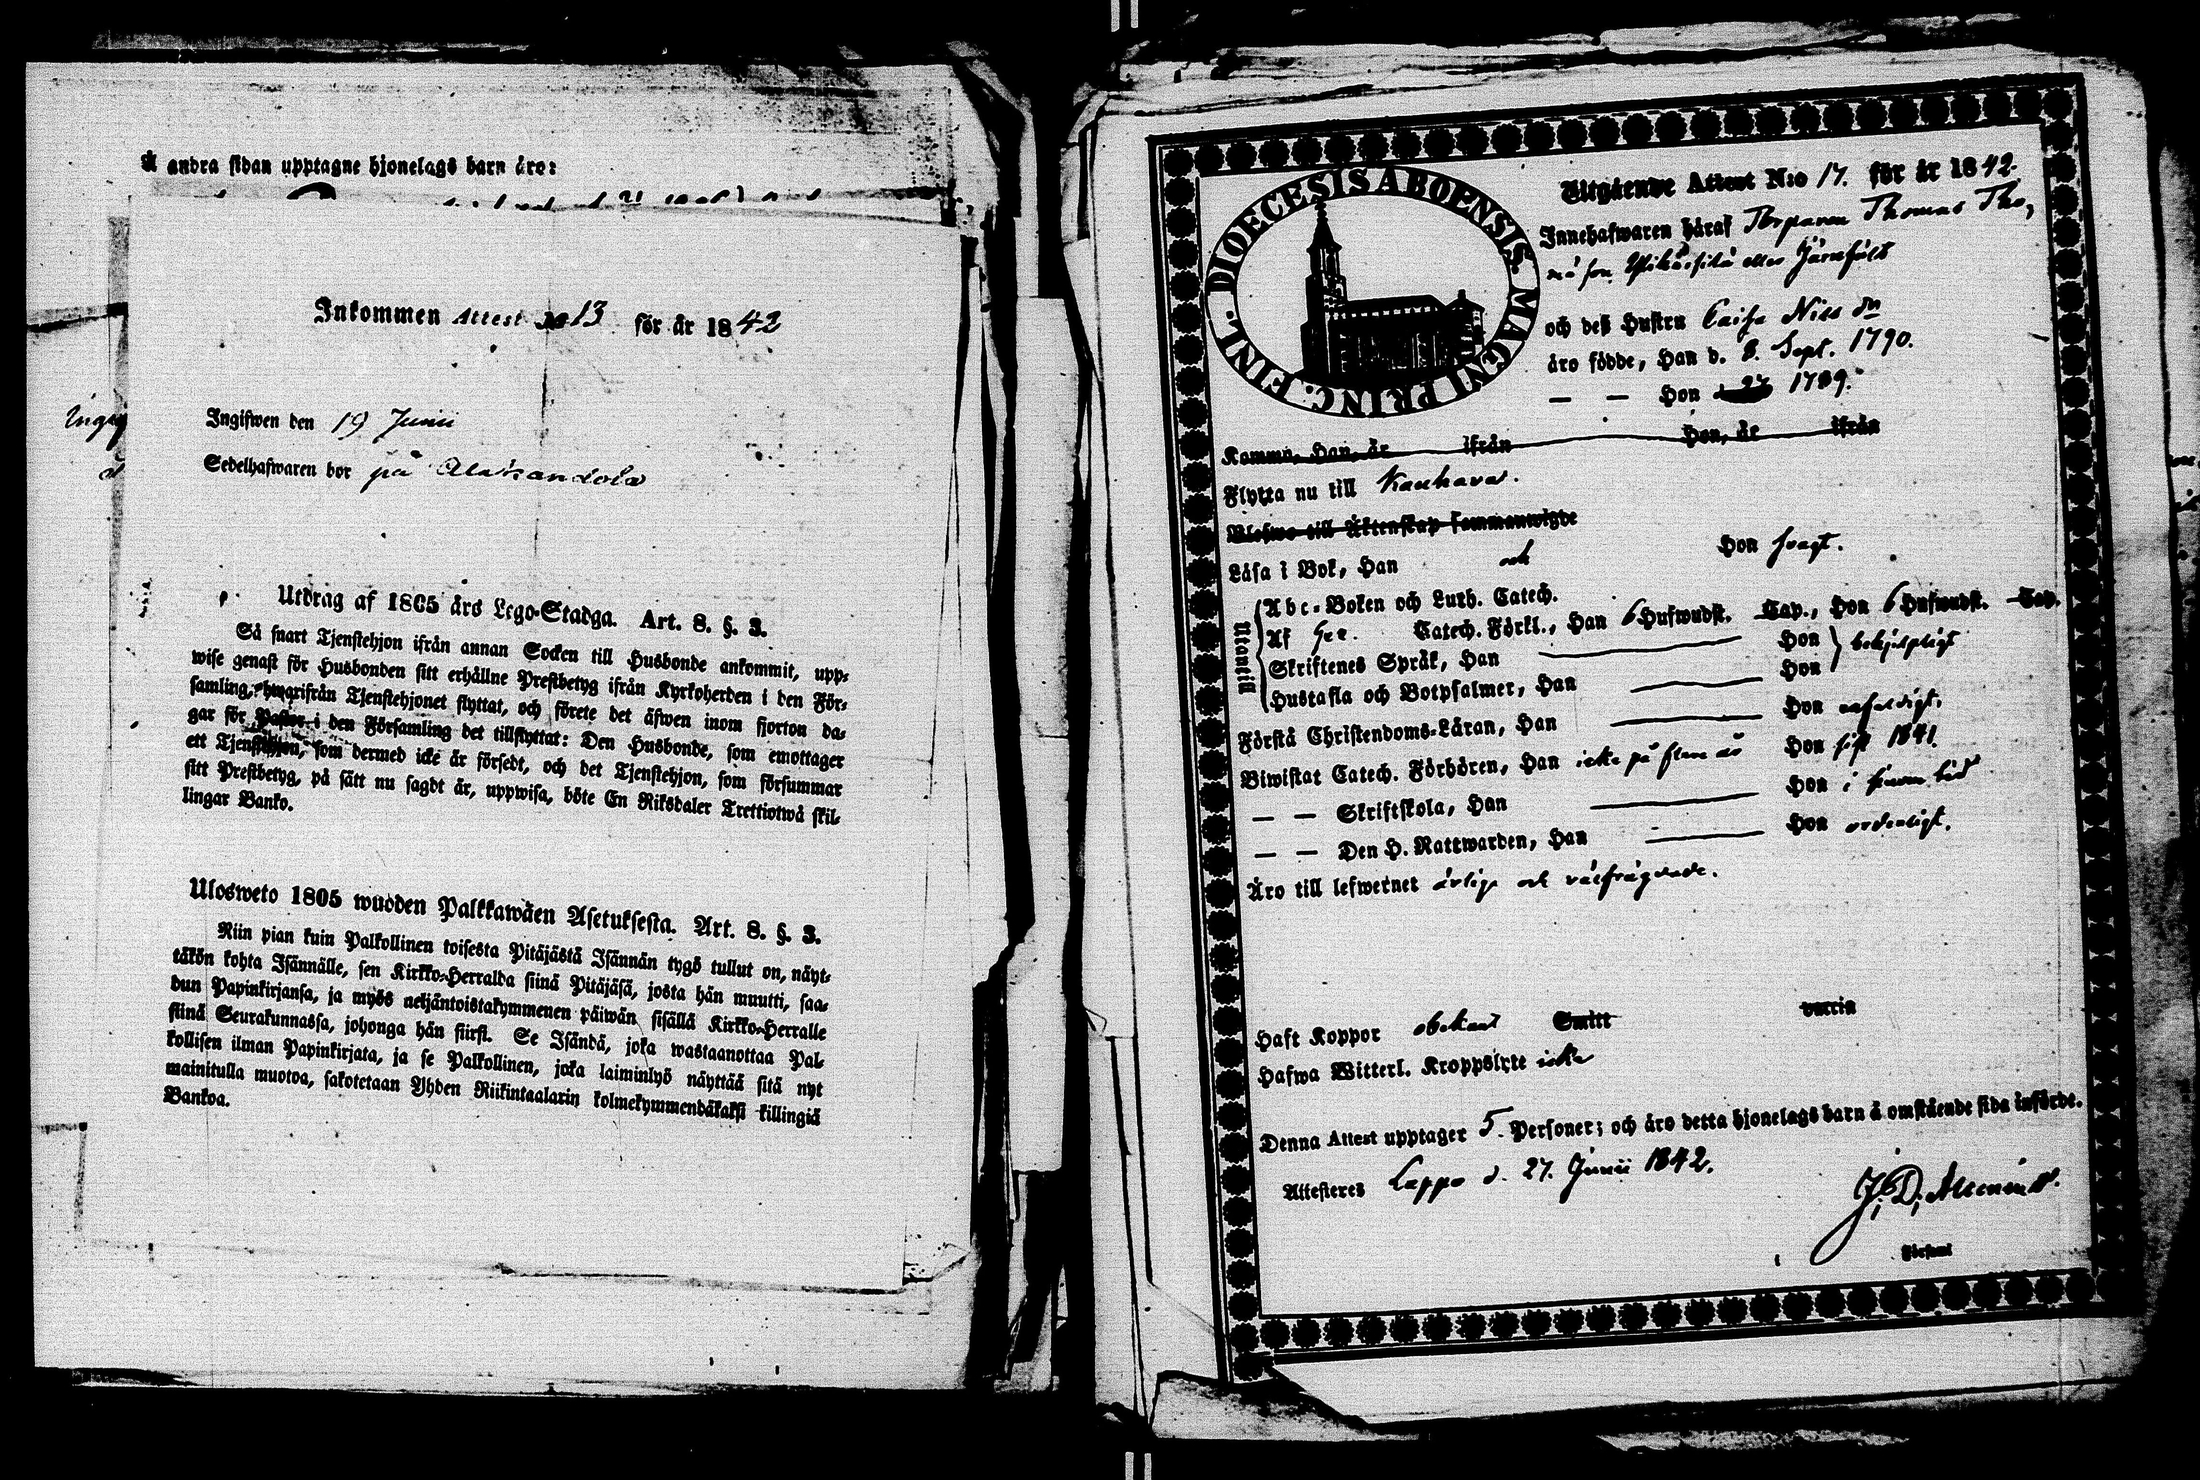 Å andra sidan upptagne hjonelags barn äro:
Inkommen Attest No 13 för år 1842
Ingifwen den 19 Junii
Sedelhafwaren bor på Alakandola
Utdrag af 1805 års Lego-Stadga. Art. 8. §. 3.
Så snart Tjenstehjon ifrån annan Socken till Husbonde ankommit, upp-
wise genast för Husbonden sitt erhållne Prestbetyg ifrån Kyrkoherden i den För-
samling, hwarifrån Tjenstehjonet flyttat, och förete det äfwen inom fjorton da-
gar för Pastor i den Församling det tillflyttat: Den Husbonde, som emottager
ett Tjenstehjon, som dermed icke är försedt, och det Tjenstehjon, som försummar
sitt Prestbetyg, på sätt nu sagdt är, uppwisa, böte En Riksdaler Trettiotwå skil-
lingar Banko.
Ulosweto 1805 wuoden Palkkawäen Asetuksesta. Art. 8. §. 3.
Niin pian kuin Palkollinen toisesta Pitäjästä Isännän tygö tullut on, näyt-
täkön kohta Isännälle, sen Kirkko-Herralda siinä Pitäjäsä, josta hän muutti, saa-
dun Papinkirjansa, ja myös neljäntoistakymmenen päiwän sisällä Kirkko-Herralle
siinä Seurakunnassa, johonga hän siirsi. Se Isändä, joka wastaanottaa Pal-
kollisen ilman Papinkirjata, ja se Palkollinen, joka laiminlyö näyttää sitä nyt
mainitulla muotoa, sakotetaan Yhden Riikintaalarin kolmekymmendäkaksi killingiä
Bankoa.
DIOECESIS ABOENSIS. MAGNI PRINC. FINL.
Utgående Attest N:o 17. för år 1842.
Innehafwaren häraf Torparen Thomas Tho,
må son eller Järnfält
och deß Hustru Caisa Nils dr
äro födde, Han d. 8. Sept. 1790.
— — Hon 1789.
Kommo, Han, år ifrån Hon, år ifrån
Flytta nu till Kauhava.
Blefwo till Äktenskap sammanwigde
Läsa i Bok, Han och Hon swagt.
Utantill
Abc-Boken och Luth. Catech.
Af Catech. Förkl., Han 6 Hufwudst. Cap., Hon 6 Hufwudst. Cap.
Skriftenes Språk, Han Hon behjelpligt
Hustafla och Botpsalmer, Han Hon
Förstå Christendoms-Läran, Han Hon enfaldigt.
Biwistat Catech. Förhören, Han icke på flera år Hon sist 1841.
— — Skriftskola, Han Hon i sinom tid
— — Den H. Nattwarden, Han Hon ordentligt.
Äro till lefwernet ärlige och välfrägdade.
Haft Koppor obekant Smitt
Hafwa Witterl. Kroppslyte icke
Denna Attest upptager 5. Personer; och äro detta hjonelags barn å omstående sida införde.
Attesteres Lappo d. 27. Junii 1842.
J. D. Alcenius.